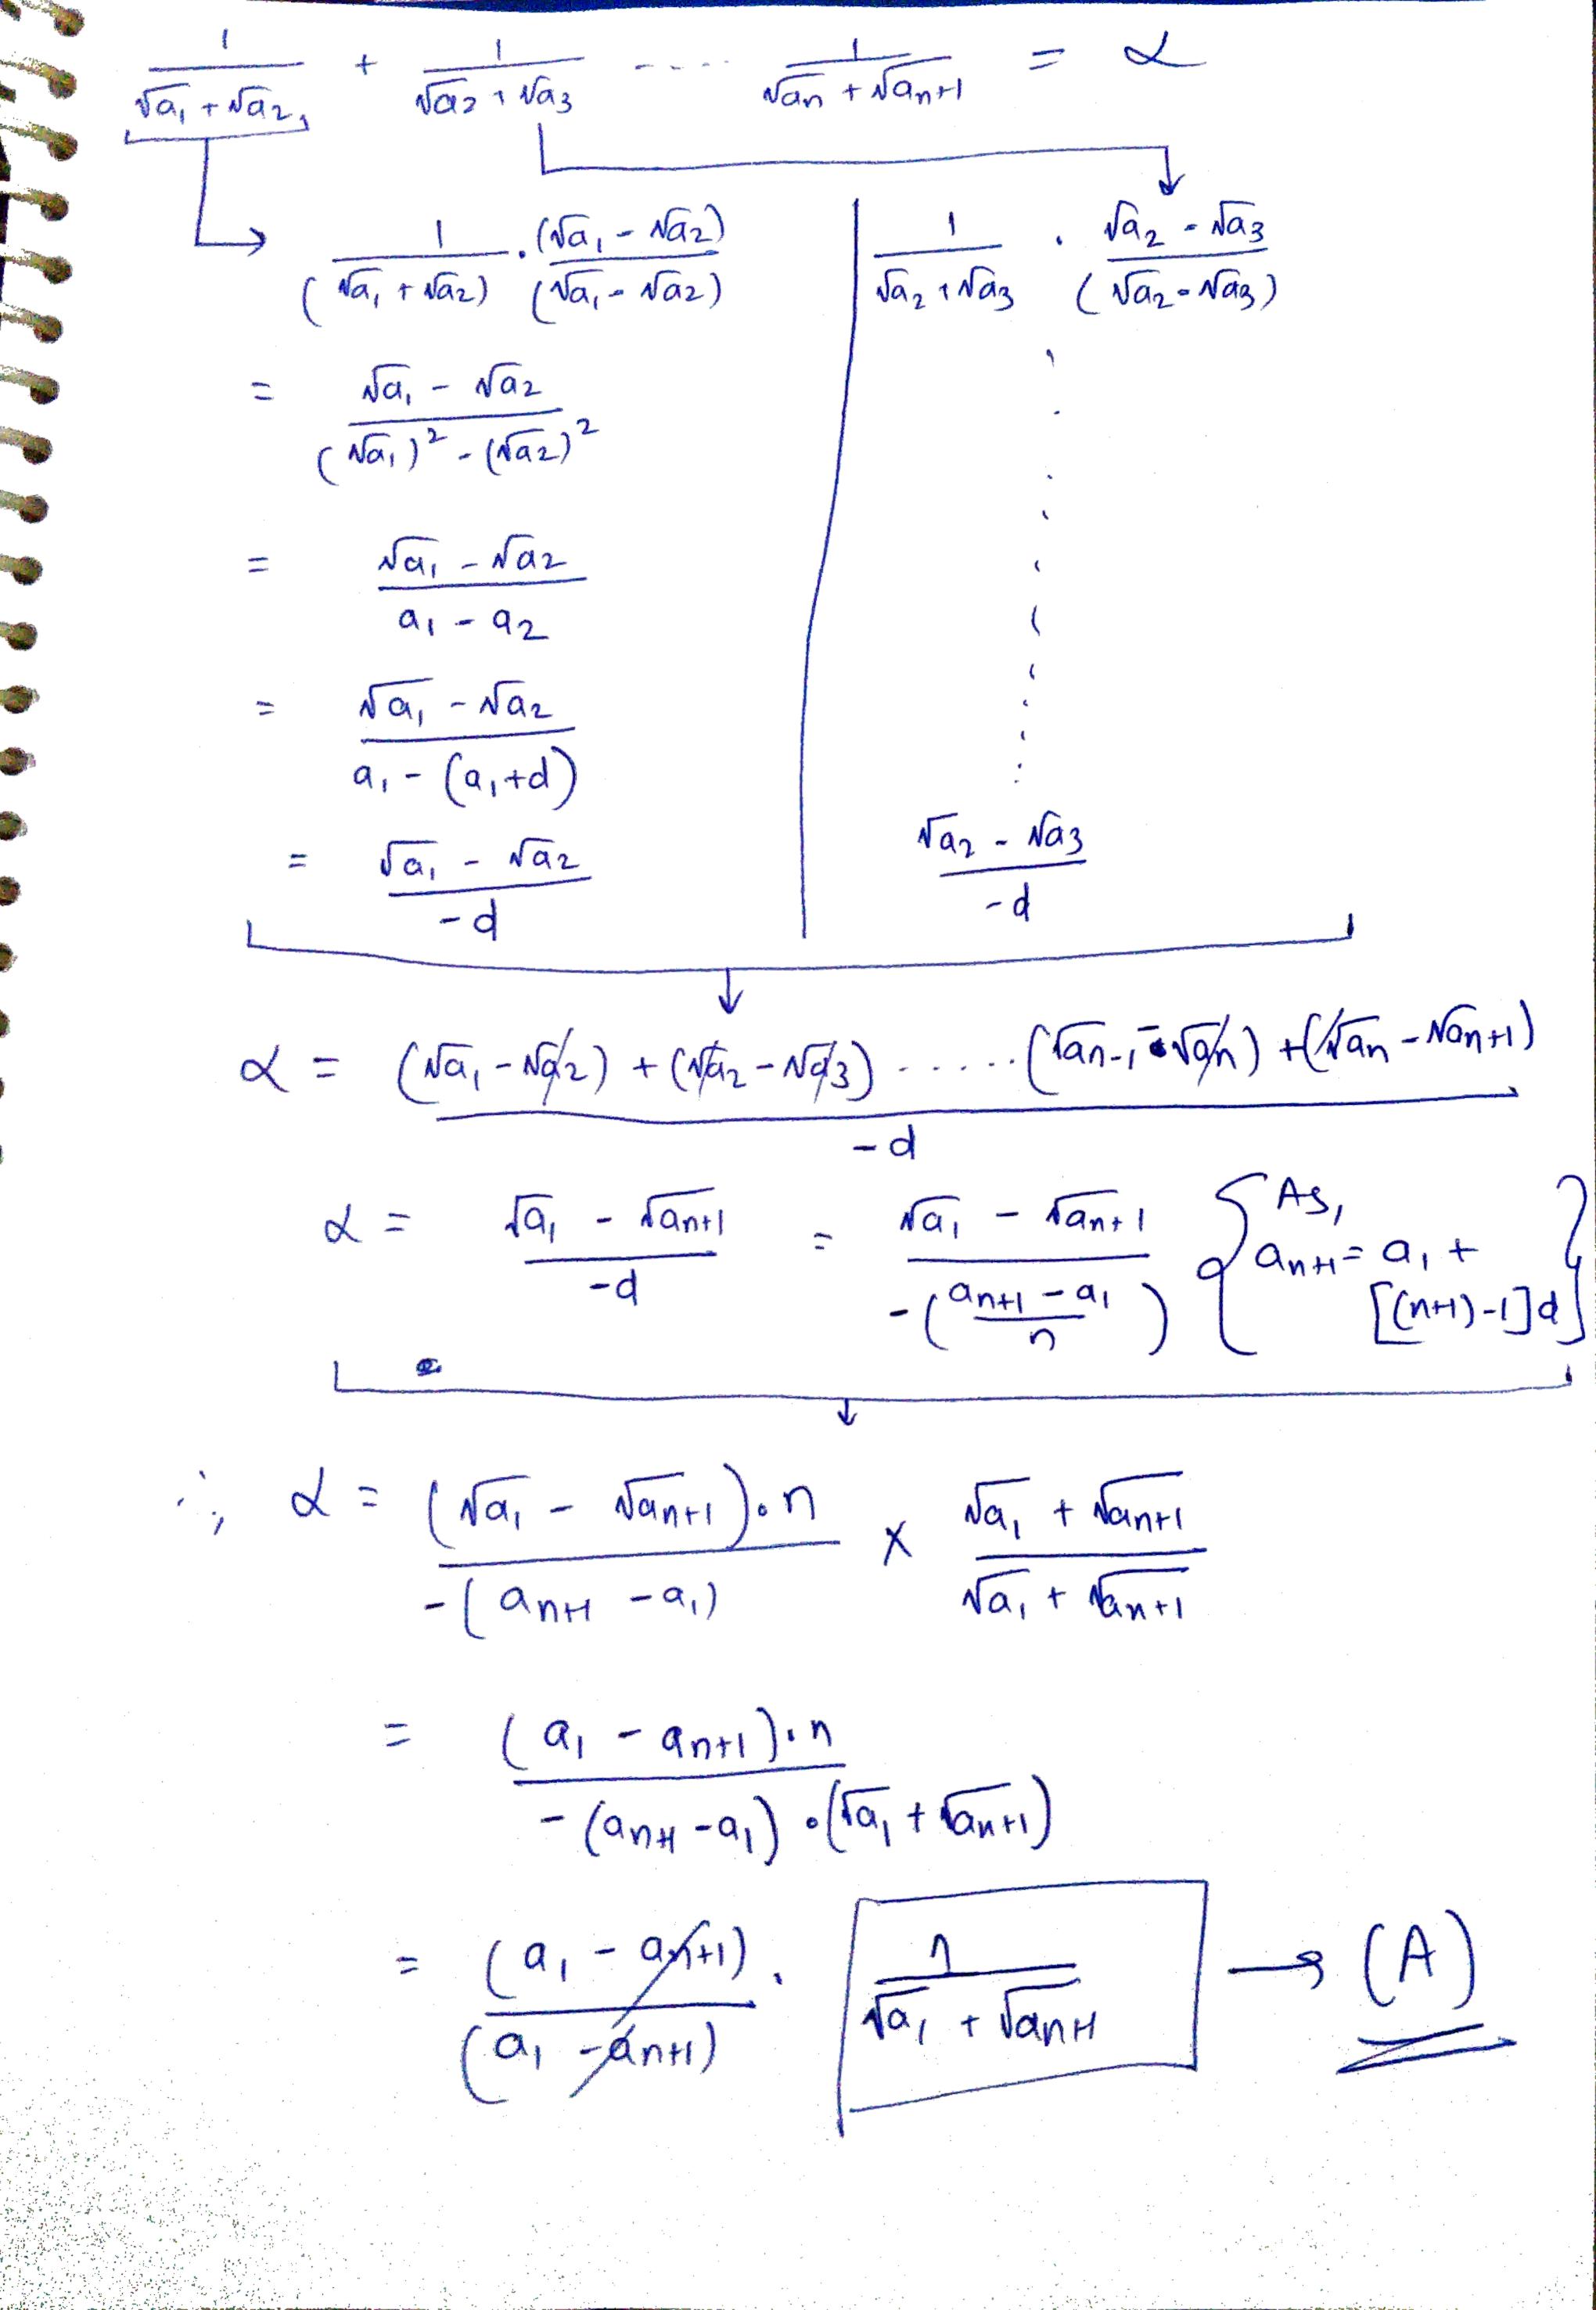 1/(√a₁ + √a₂) + 1/(√a₂ + √a₃) ..... 1/(√aₙ + √aₙ₊₁) = α
1/(√a₁ + √a₂) . (√a₁ - √a₂)/(√a₁ - √a₂) | 1/(√a₂ + √a₃) . (√a₂ - √a₃)/(√a₂ - √a₃)
= (√a₁ - √a₂)/((√a₁)² - (√a₂)²)
= (√a₁ - √a₂)/(a₁ - a₂)
= (√a₁ - √a₂)/(a₁ - (a₁+d))
= (√a₁ - √a₂)/(-d) | (√a₂ - √a₃)/(-d)
α = ((√a₁ - √a₂) + (√a₂ - √a₃) ...... (√aₙ₋₁ - √aₙ) + (√aₙ - √aₙ₊₁))/(-d)
α = (√a₁ - √aₙ₊₁)/(-d) = (√a₁ - √aₙ₊₁)/(-((aₙ₊₁ - a₁)/n)) { As, aₙ₊₁ = a₁ + [(n+1)-1]d }
∴, α = ((√a₁ - √aₙ₊₁).n)/(-(aₙ₊₁ - a₁)) × (√a₁ + √aₙ₊₁)/(√a₁ + √aₙ₊₁)
= ((a₁ - aₙ₊₁).n)/(-(aₙ₊₁ - a₁).(√a₁ + √aₙ₊₁))
= (a₁ - aₙ₊₁)/(a₁ - aₙ₊₁) . n/(√a₁ + √aₙ₊₁) → (A)